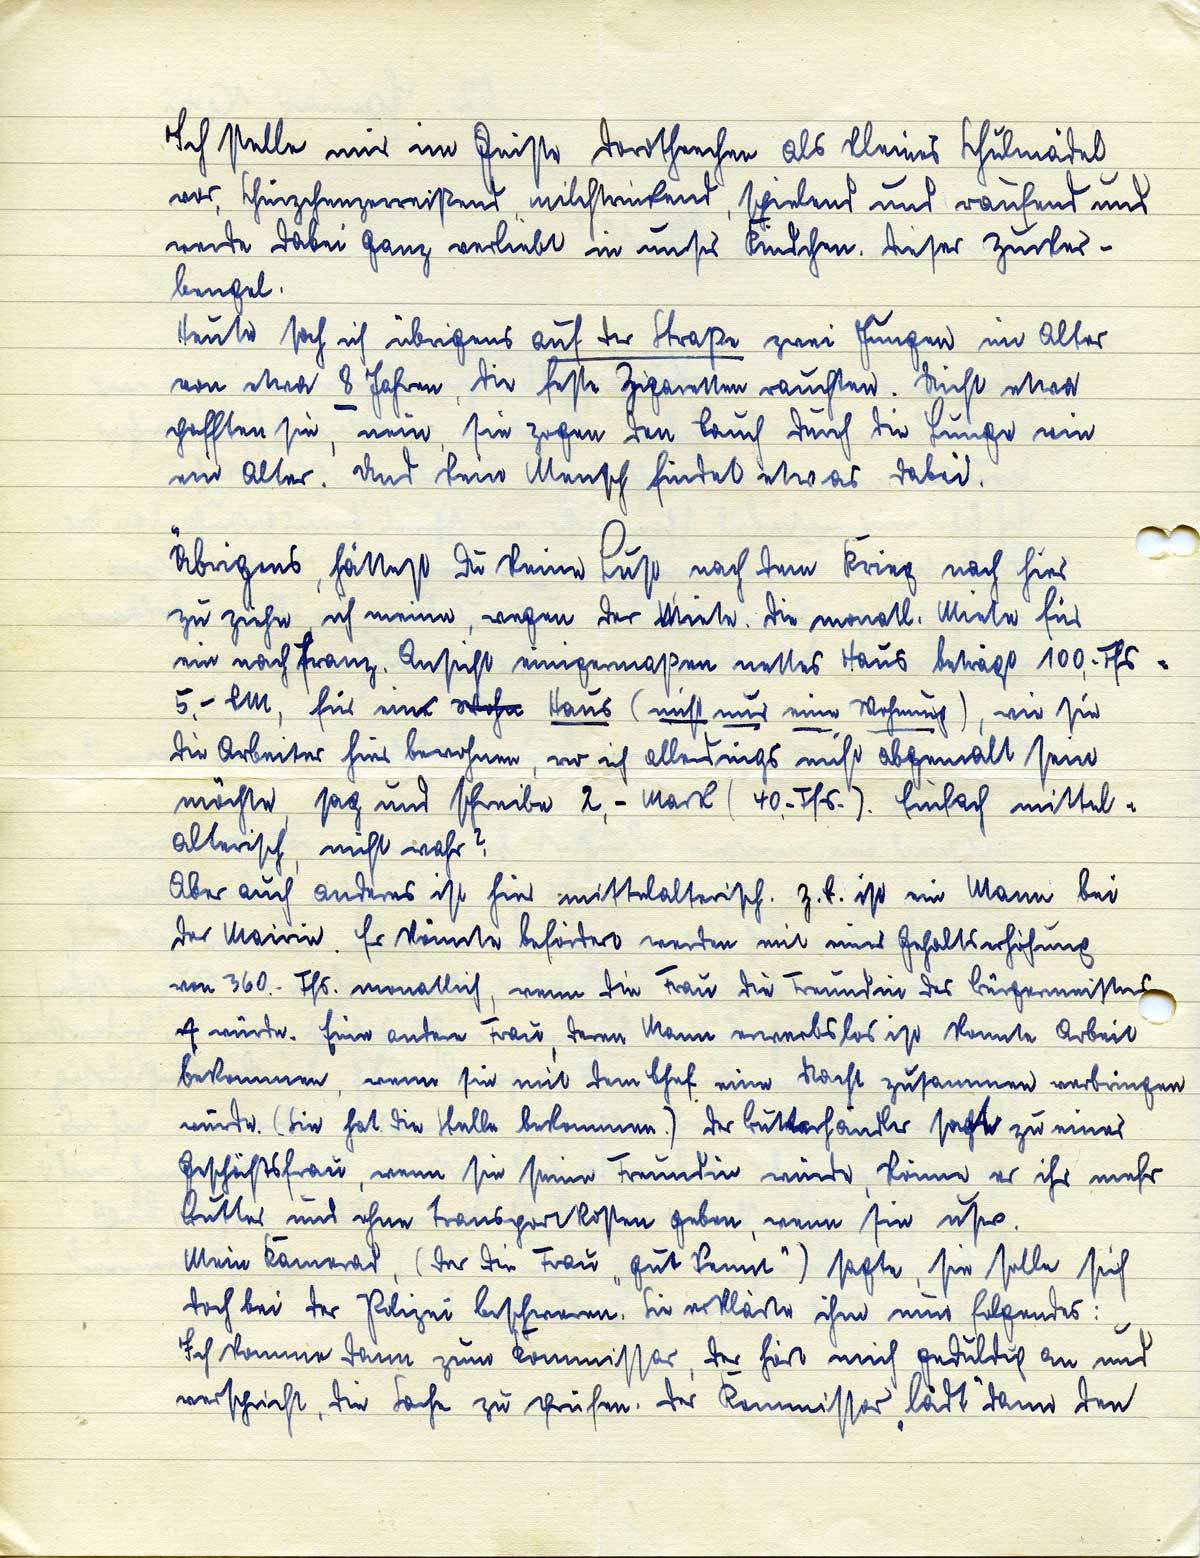 Ich stelle mir im Geiste Dorotheechen als kleines Schulmädel
vor, schürzchenzerreißend, milchtrinkend, spielend und raufend und
werde dabei ganz verliebt in unser Kindchen. Dieser Zucker-
bengel.
Heute sah ich übrigens auf der Straße zwei Jungen im Alter
von etwa 8 Jahren, die feste Zigaretten rauchten. Nicht etwa
pafften sie, nein, sie zogen den Rauch durch die Lunge wie
ein Alter. Und kein Mensch findet etwas dabei.
Übrigens, hättest Du keine Lust nach dem Krieg nach hier
zu ziehn, ich meine, wegen der Miete. Die monatl. Miete für
ein nach franz. Ansicht einigermaßen nettes Haus beträgt 100,-Frs =
5,- RM, für ein Wohn Haus (nicht nur eine Wohnung), wie sie
die Arbeiter hier bewohnen, wo ich allerdings nicht abgemalt sein
möchte, sag und schreibe 2,- Mark (40,-Frs.). Einfach mittel-
alterisch, nicht wahr?
Aber auch anderes ist hier mittelalterisch. z.B. ist ein Mann bei
der Mairie. Er könnte befördert werden mit einer Gehaltserhöhung
von 360.- Frs. monatlich, wenn die Frau die Freundin des Bürgermeisters
würde. Eine andere Frau, deren Mann erwerbslos ist konnte Arbeit
bekommen, wenn sie mit dem Chef eine Nacht zusammen verbringen
würde. (Sie hat die Stelle bekommen.) Der Butterhändler sagte zu einer
Geschäftsfrau, wenn sie seine Freundin würde, könne er ihr mehr
Butter und ohne Transportkosten geben, wenn sie usw.
Mein Kamerad, (der die Frau „gut kennt") sagte, sie solle sich
doch bei der Polizei beschweren. Sie erklärte ihm nun folgendes:
Ich komme dann zum Kommissar, der hört mich geduldig an und
verspricht, die Sache zu prüfen. Der Kommissar „lädt" dann den